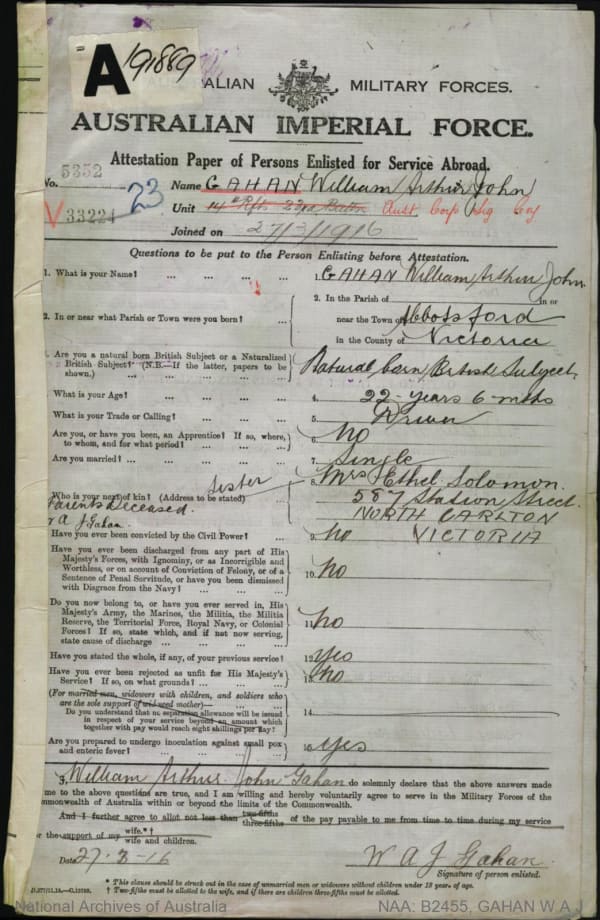 A 191889
AUSTRALIAN MILITARY FORCES.
AUSTRALIAN IMPERIAL FORCE.
Attestation Paper of Persons Enlisted for Service Abroad.
No. 5352
23
Name GAHAN William Arthur John
V 33224
Unit 14th Rfts 23rd Battn Aust Corp Sig Coy
Joined on 27/3/1916
Questions to be put to the Person Enlisting before Attestation.
1. What is your Name? ... ... ... ... 1. GAHAN William Arthur John
2. In or near what Parish or Town were you born? ...
2. In the Parish of in or
near the Town of Abbotsford
in the County of Victoria
3. Are you a natural born British Subject or a Naturalized
British Subject? (N.B.—If the latter, papers to be
shown.) ... ... ... ... ...
Natural born British Subject
What is your Age? ... ... ... ... 4. 22 years 6 mths
What is your Trade or Calling? ... ... ... 5. Driver
Are you, or have you been, an Apprentice? If so, where,
to whom, and for what period? ... ... ... 6. No
Are you married? ... ... ... ... 7. Single
Who is your next of kin? (Address to be stated) ...
Sister
Parents deceased.
W A J Gahan.
8. Mrs Ethel Solomon.
587 Station Street
NORTH CARLTON
VICTORIA
Have you ever been convicted by the Civil Power? ... 9. No
Have you ever been discharged from any part of His
Majesty's Forces, with Ignominy, or as Incorrigible and
Worthless, or on account of Conviction of Felony, or of a
Sentence of Penal Servitude, or have you been dismissed
with Disgrace from the Navy? ... ... ...
10. No
Do you now belong to, or have you ever served in, His
Majesty's Army, the Marines, the Militia, the Militia
Reserve, the Territorial Force, Royal Navy, or Colonial
Forces? If so, state which, and if not now serving,
state cause of discharge ... ... ...
11. No
Have you stated the whole, if any, of your previous service? 12. Yes
Have you ever been rejected as unfit for His Majesty's
Service? If so, on what grounds? ... ... ... 13. No
(For married men, widowers with children, and soldiers who
are the sole support of widowed mother)—
Do you understand that no separation allowance will be issued
in respect of your service beyond an amount which
together with pay would reach eight shillings per day?
14.
Are you prepared to undergo inoculation against small pox
and enteric fever? ... ... ... ... 15. Yes
I, William Arthur John Gahan do solemnly declare that the above answers made
me to the above questions are true, and I am willing and hereby voluntarily agree to serve in the Military Forces of the
Commonwealth of Australia within or beyond the limits of the Commonwealth.
And I further agree to allot not less than two-fifths three-fifths of the pay payable to me from time to time during my service
for the support of my wife.*† wife and children.
Date 27-3-16
W A J Gahan.
Signature of person enlisted.
* This clause should be struck out in the case of unmarried men or widowers without children under 18 years of age.
† Two-fifths must be allotted to the wife, and if there are children three-fifths must be allotted.
National Archives of Australia
NAA: B2455, GAHAN W A J